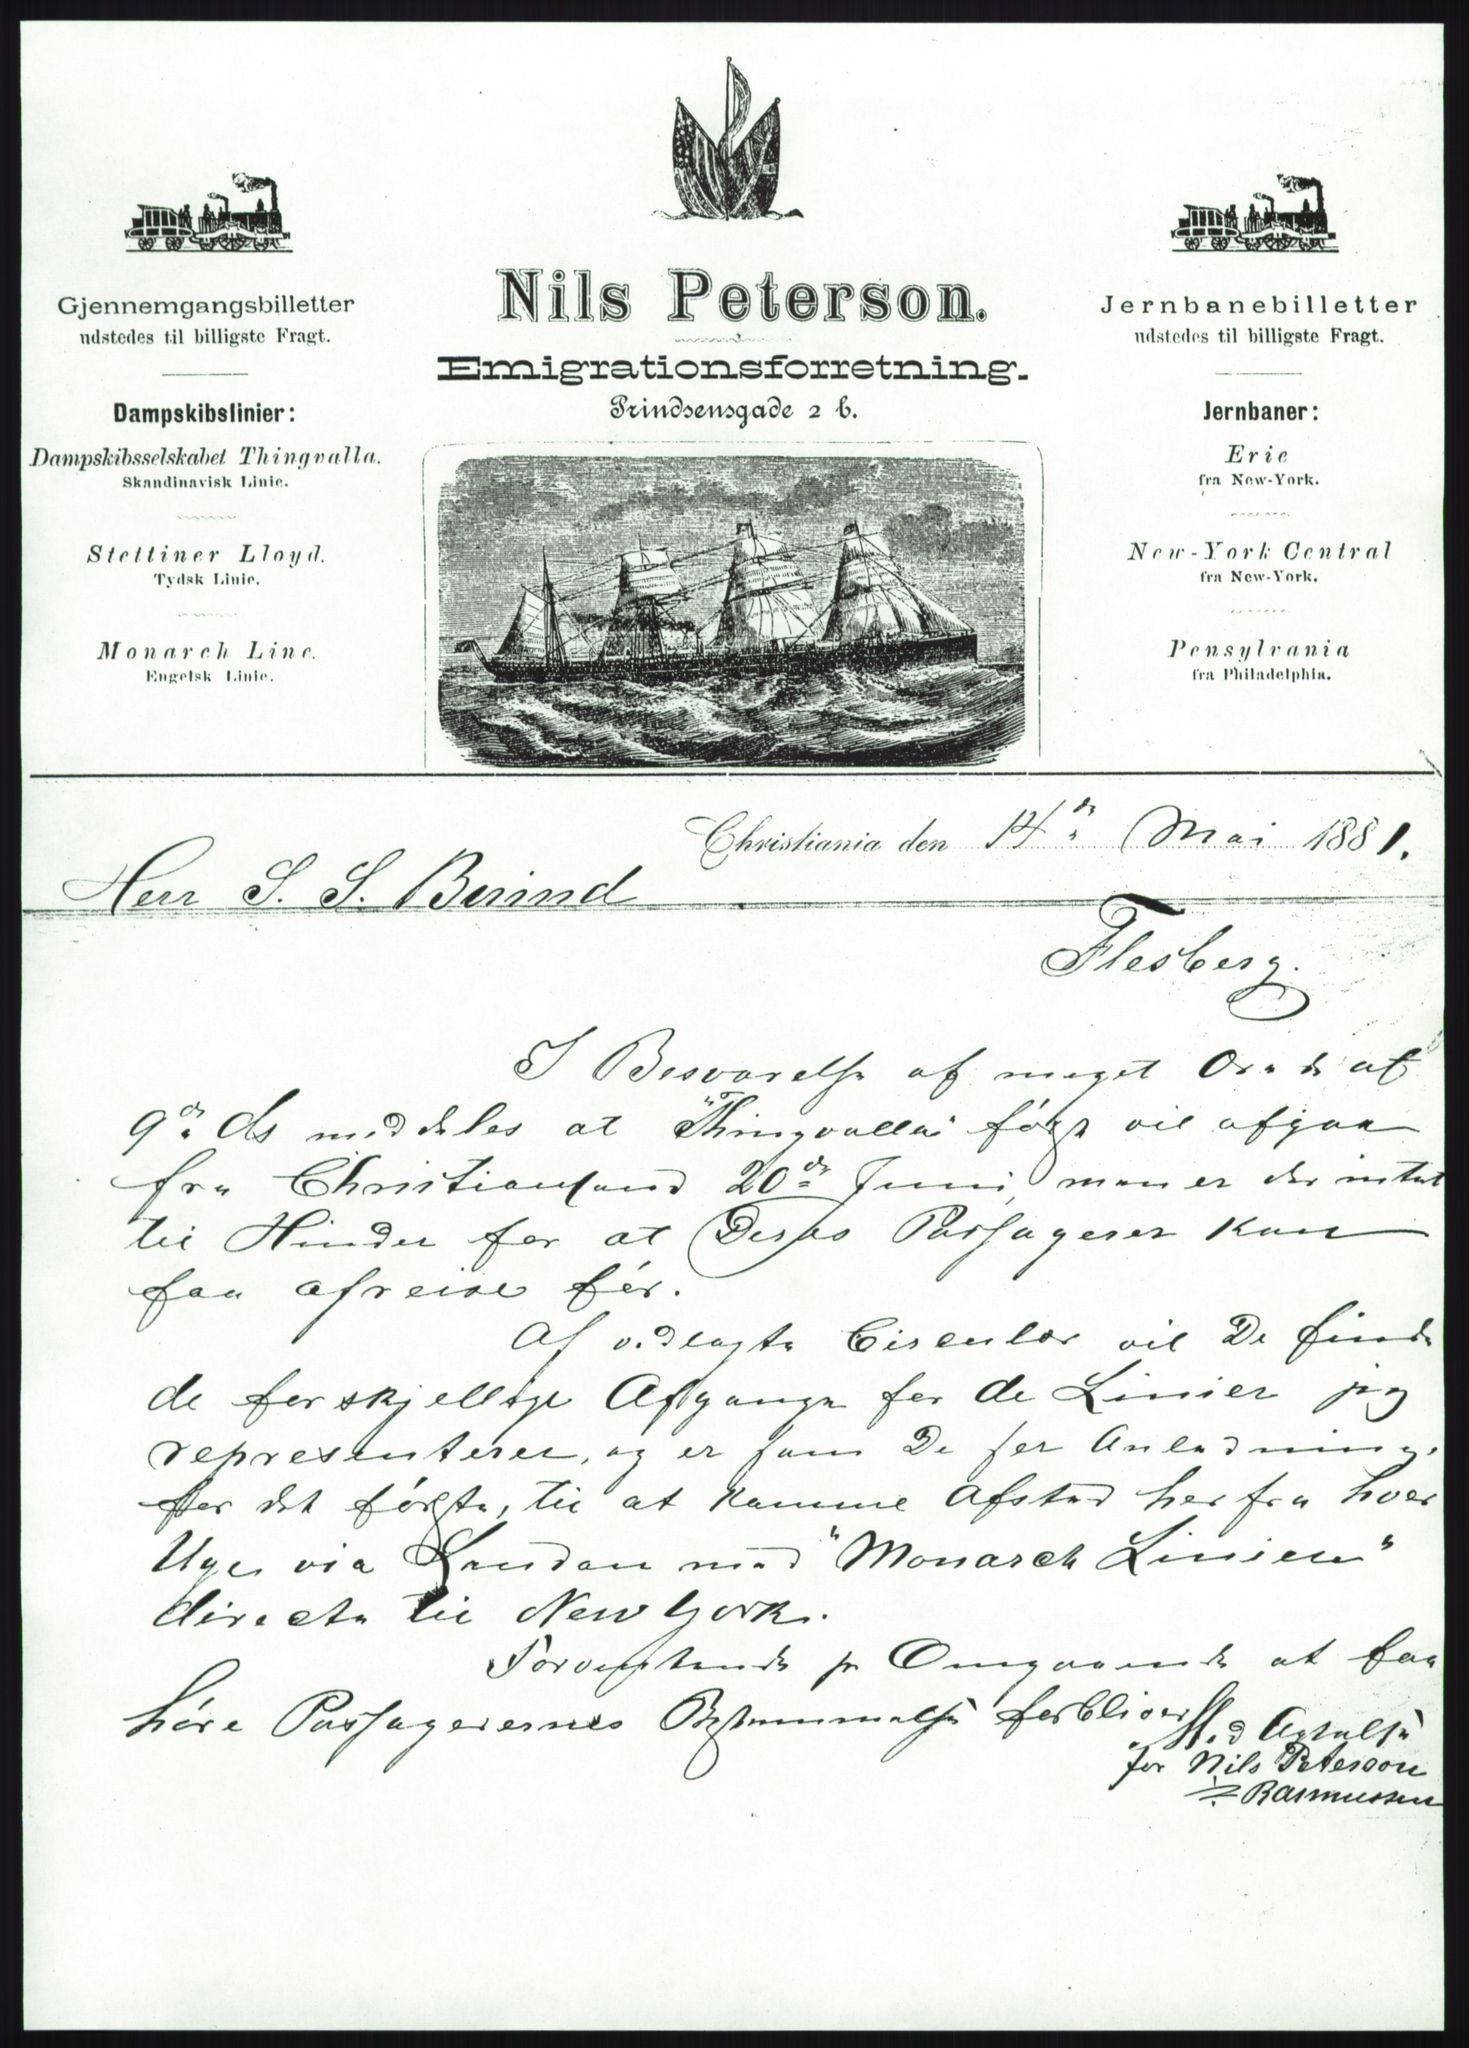 Nils Peterson.
Emigrationsforretning.
Prindsensgade 2 b.
Gjennemgangsbilletter
udstedes til billigste Fragt.
Dampskibslinier:
Dampskibsselskabet Thingvalla.
Skandinavisk Linie.
Stettiner Lloyd.
Tydsk Linie.
Monarch Line.
Engelsk Linie.
Jernbanebilletter
udstedes til billigste Fragt.
Jernbaner:
Erie
fra New-York.
New-York Central
fra New-York.
Pensylvania
fra Philadelphia.
Christiania den 14de Mai 1881.
Herr S. S. Berind
Flesberg.
I Besvarelse af meget Ærede af
9de ds meddeles at "Thingvalla" først vil afgaa
fra Christiansand 20de Juni, men er der intet
til Hinder for at Deres Passagerer kan
faa afreise før.
Af vedlagte Circulær vil De finde
de forskjellige Afgange for de Linier jeg
representerer, og er som De ser Anledning,
for det første, til at komme Afsted herfra hver
Uge via London med "Monarch Linien"
directe til New York.
Forventende pr Omgaaende at faa
høre Passagerernes Bestemmelse forbliver
Med Agtelse
for Nils Peterson
Rasmussen